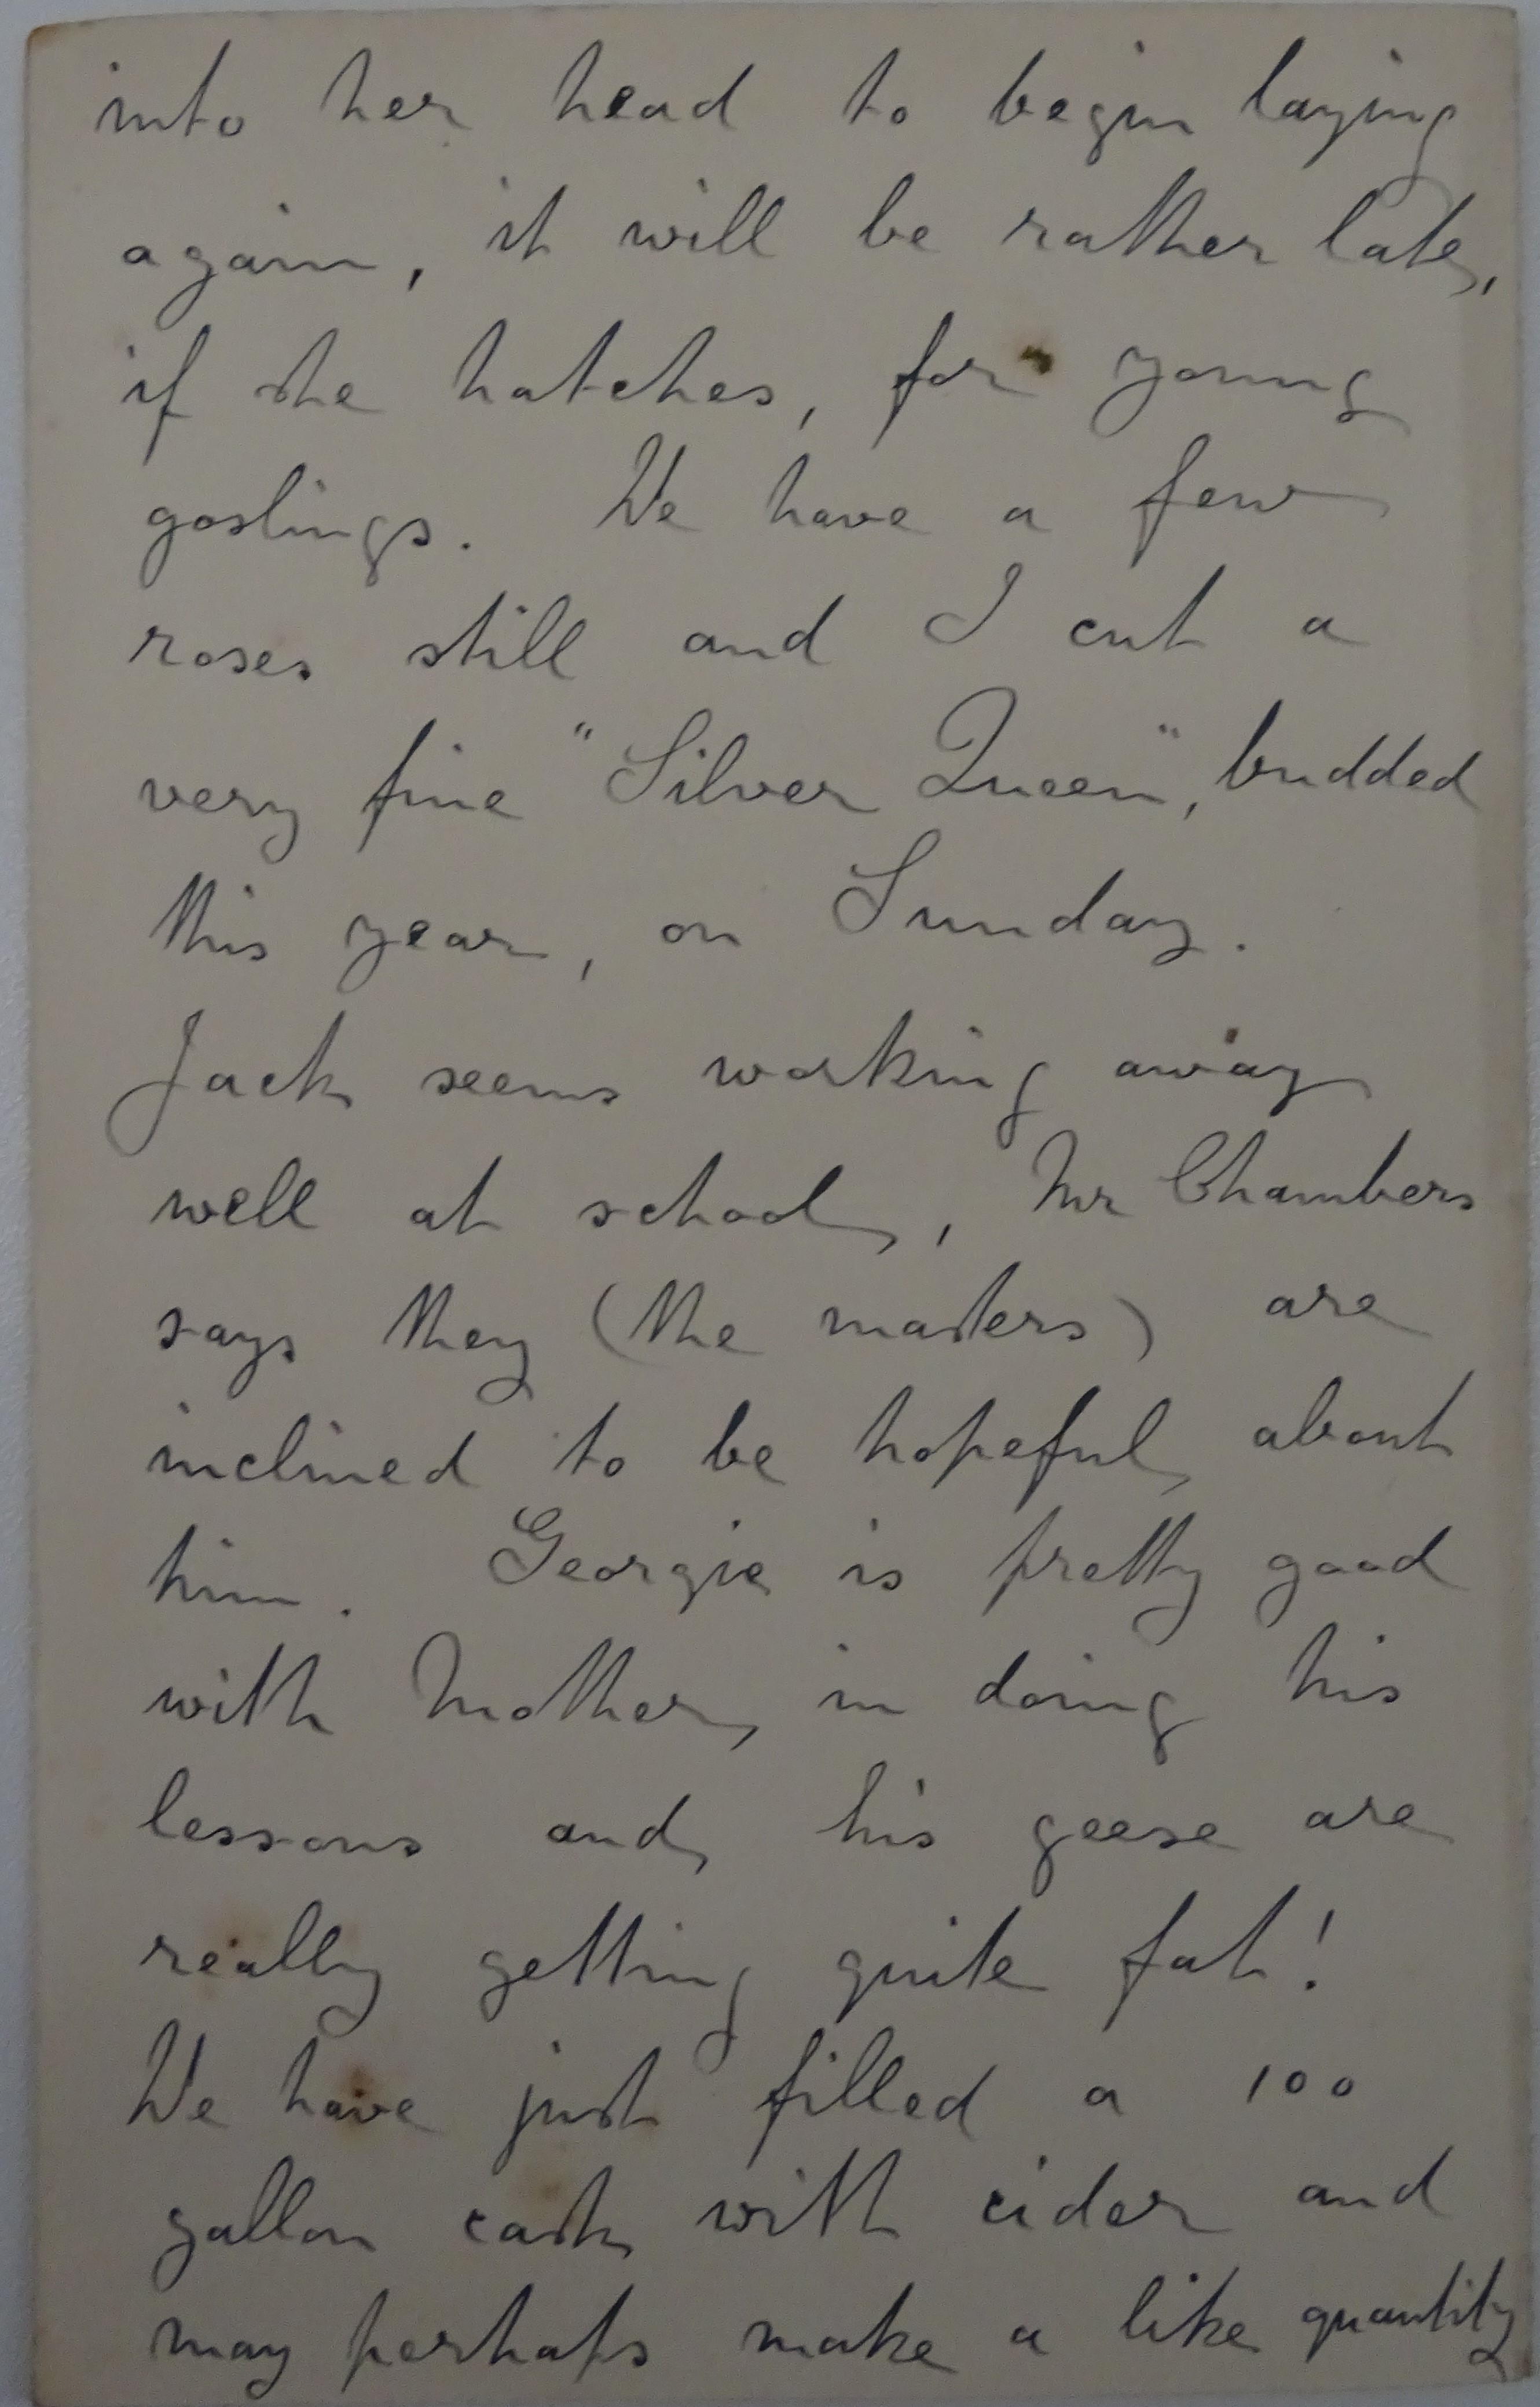 into her head to begin laying
again, it will be rather late,
if she hatches, for young
goslings. We have a few
roses still and I cut a
very fine "Silver Queen", budded
this year, on Sunday.
Jack seems working away
well at school, Mr Chambers
says they (the masters) are
inclined to be hopeful about
him. Georgie is pretty good
with Mother, in doing his
lessons and his geese are
really getting quite fat!
We have just filled a 100
gallon cask with cider and
may perhaps make a like quantity